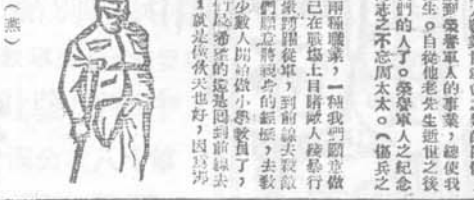 到榮譽軍人的事業，總使我
生。自從他老先生逝世之後
們的人了。榮譽軍人之紀念
志之不忘周太太。（傷兵之
兩種職業，一種我們願意做
己在戰場上目睹敵人殘暴行
衆踴躍從軍，到前線去殺敵
們願意將親身的經歷，去教
少數人開始做小學教員了，
們最希望的還是回到前線去
就是做伙夫也好，因爲那
（燕）